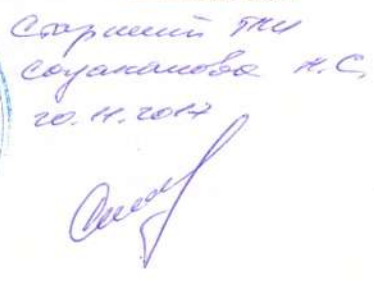 Старший ТКИ
Соуаканова Н.С.
20.11.2017